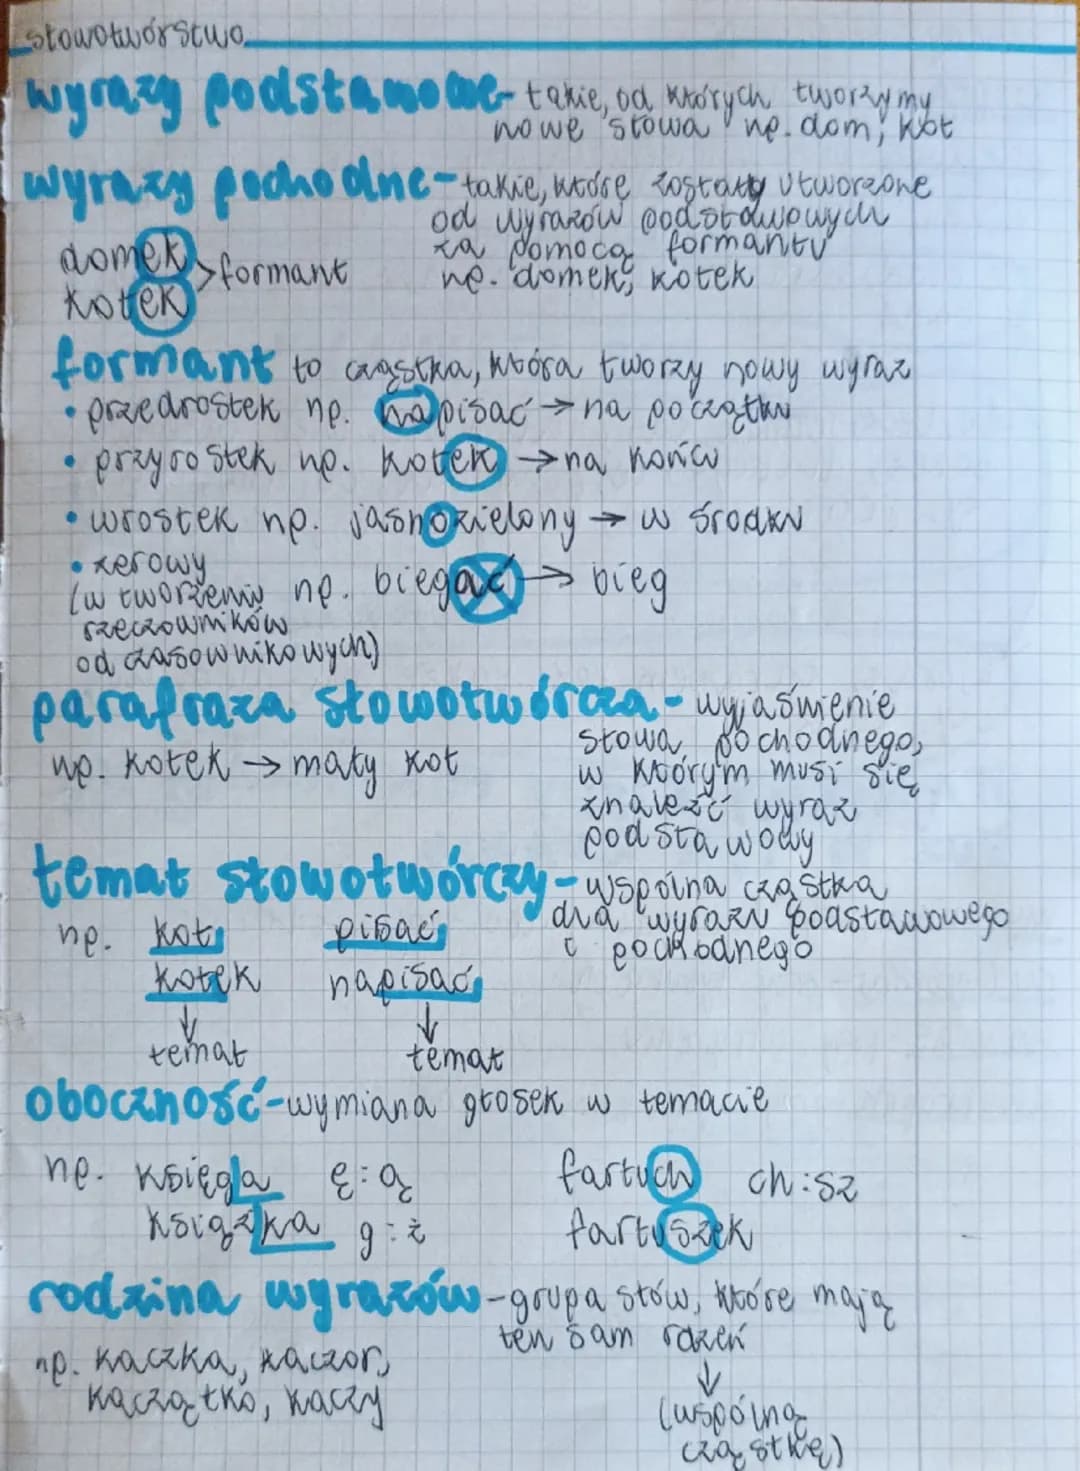 słowotwórstwo
wyrazy podstawowe - takie, od których tworzymy
nowe słowa np. dom, kot
wyrazy pochodne - takie, które zostały utworzone
od wyrazów podstawowych
za pomocą formantu
np. domek, kotek
domek
kotek > formant
formant to cząstka, która tworzy nowy wyraz
• przedrostek np. napisać → na początku
• przyrostek np. kotek → na końcu
• wrostek np. jasnozielony → w środku
• zerowy
(w tworzeniu np. biegać → bieg
rzeczowników
od czasownikowych)
parafraza słowotwórcza - wyjaśnienie
słowa pochodnego,
w którym musi się
znaleźć wyraz
podstawowy
np. kotek → mały kot
temat słowotwórczy - wspólna cząstka
dla wyrazu podstawowego
i pochodnego
np. kot pisać
kotek napisać
↓ ↓
temat temat
oboczność - wymiana głosek w temacie
np. księga ę:ą fartuch ch:sz
książka g:ż fartuszek
rodzina wyrazów - grupa słów, które mają
ten sam rdzeń
↓
(wspólną
cząstkę)
np. kaczka, kaczor,
kaczątko, kaczy